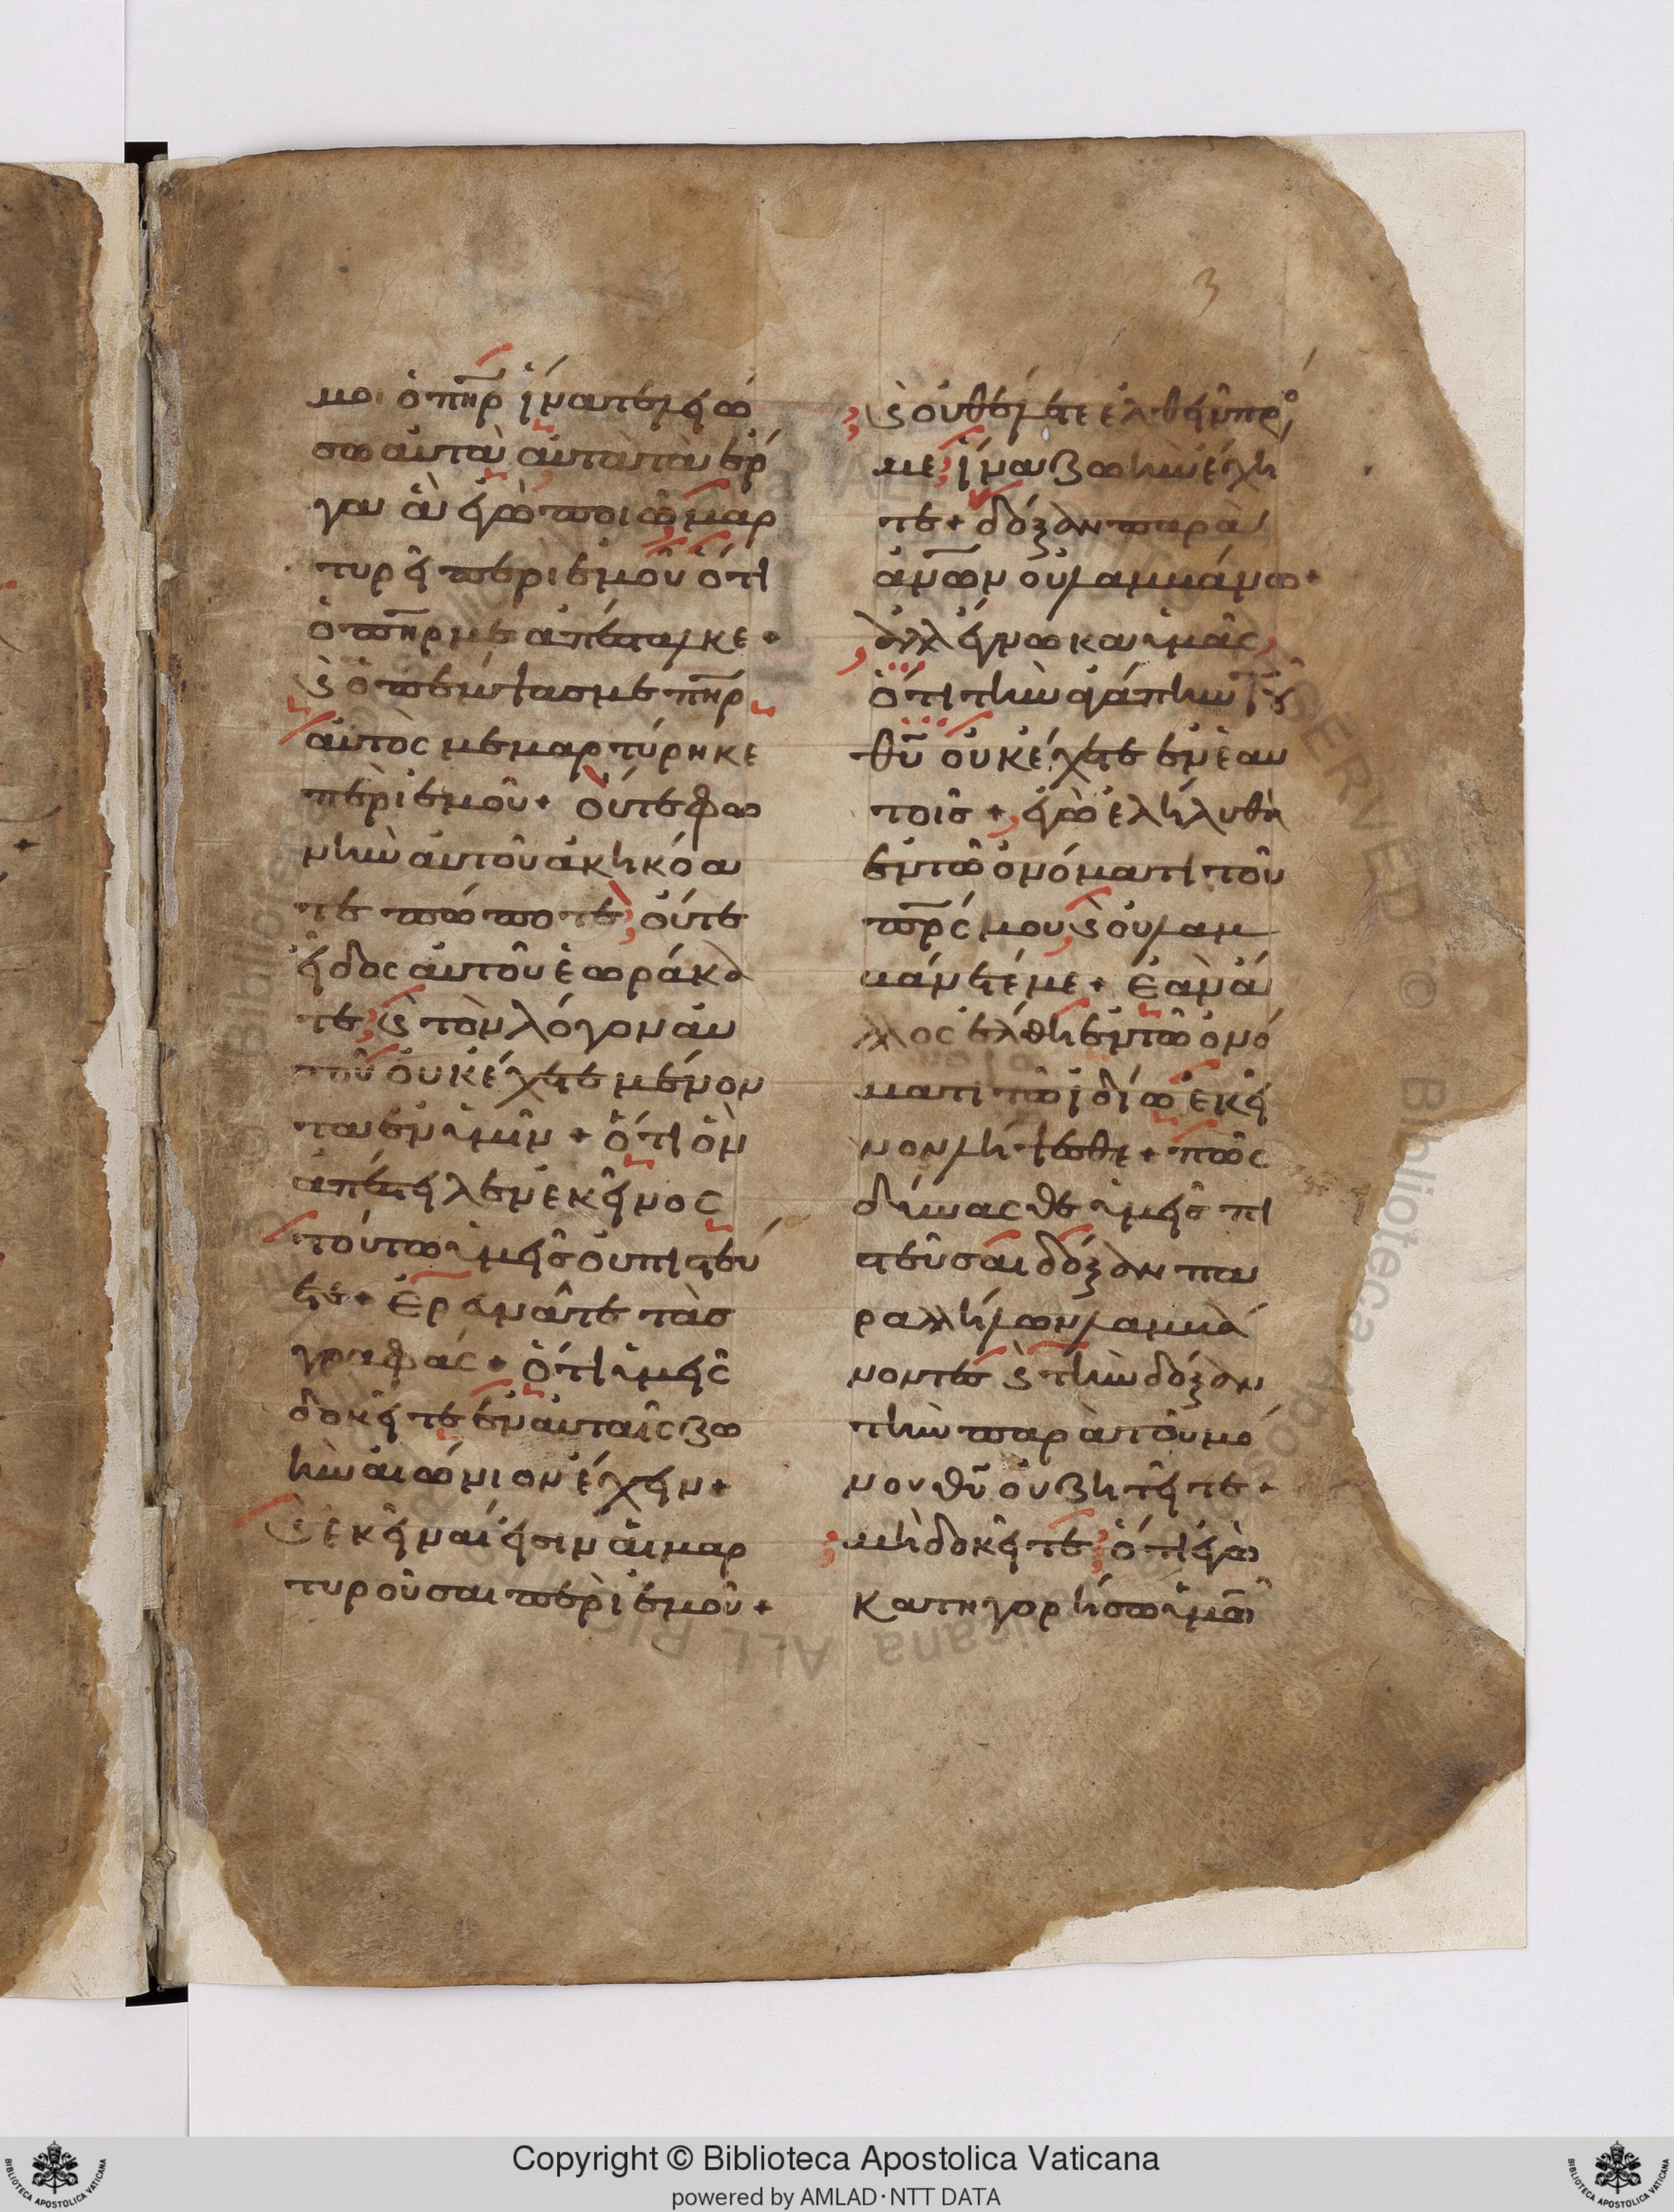 3
μοι ὁ πη̅ρ ἵνα τελειώ
σω αὐτὰ αὐτὰ τὰ ἔρ
γα ἃ ἐγὼ ποιῶ μαρ
τυρεῖ περι ἐμοῦ ὅτι
ὁ πη̅ρ με ἀπέσταλκε +
ϗ ὁ πέμψας με πη̅ρ
αὐτὸς μεμαρτύρηκε
περὶ ἐμοῦ + οὔτε φω
νὴν αὐτοῦ ἀκηκόα
τε πώποτε, οὔτε
εἶδος αὐτοῦ ἑωράκα
τε, ϗ τὸν λόγον αὐ
τοῦ οὐκ ἔχετε μένον
τα ἐν ὑμῖν + ὅτι ὃν
ἀπέστειλεν ἐκεῖνος
τούτω ὑμεῖς οὐ πιστεύ
ετε + Ἐρευνᾶτε τὰς
γραφάς + ὅτι ὑμεῖς
δοκεῖτε ἐν αὐταῖς ζω
ὴν αἰώνιον ἔχειν +
ϗ ἐκεῖναί εἰσιν αἱ μαρ
τυροῦσαι περὶ ἐμοῦ +
ϗ οὐ θέλετε ἐλθεῖν πρό
με, ἵνα ζωὴν ἔχη
τε + δόξαν παρὰ
ἀν̅ων οὐ λαμβάνω +
ἀλλ ἔγνωκα ὑμᾶς,
ὅτι τὴν ἀγάπην τοῦ
θυ̅ οὐκ ἔχετε ἐν ἑαυ
τοῖς + ἐγὼ ἐλήλυθα
ἐν τῶ ὀνόματι τοῦ
πρ̅ς μου, ϗ οὐ λαμ
βάνετέ με + Ἐὰν ἄ
λλος ἔλθη ἐν τῶ ὀνό
ματι τῶ ἰδίω ἐκεῖ
νον λήψεσθε + πῶς
δύνασθε ὑμεῖς πι
στεῦσαι δόξαν πα
ρ αλλήλων λαμβά
νοντες ϗ τὴν δόξαν
τὴν παρὰ τοῦ μό
νου θυ̅ οὐ ζητεῖτε +
μὴ δοκεῖτε, ὅτι ἐγὼ
κατηγορήσω ὑμῶν
Copyright © Biblioteca Apostolica Vaticana
powered by AMLAD·NTT DATA